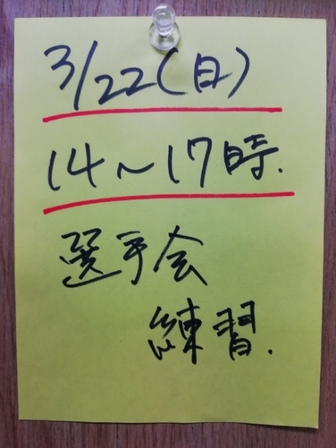 3/22(日)
14~17時.
選手会
練習.